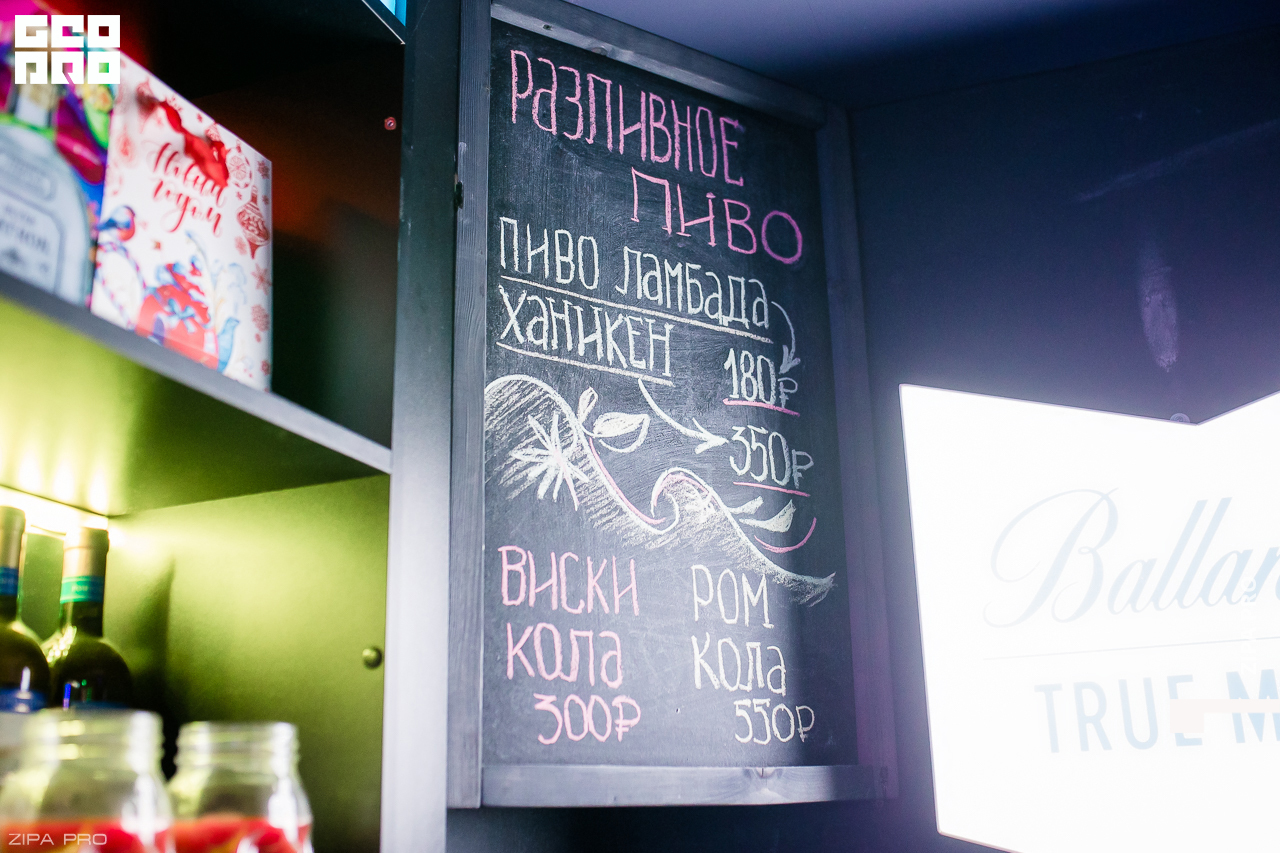 GEO
PRO
Новым
годом
РАЗЛИВНОЕ
ПИВО
ПИВО ЛАМБАДА
ХАНИКЕН
180₽
350₽
ВИСКИ
КОЛА
300₽
РОМ
КОЛА
550₽
TRUE
ZIPA PRO